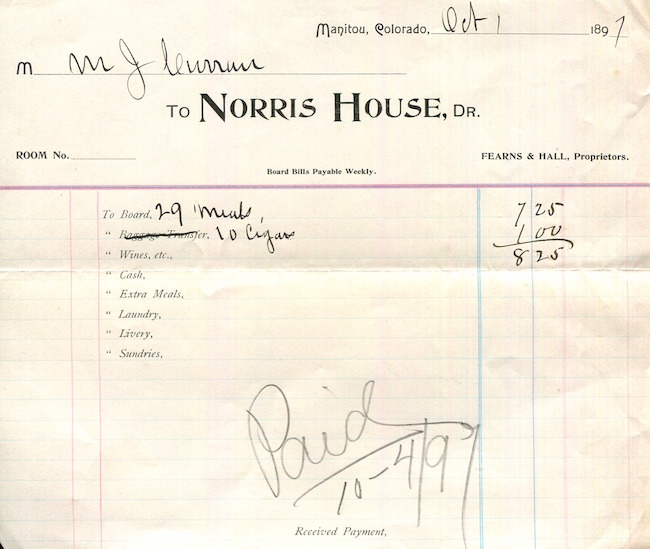 Manitou, Colorado, Oct 1 1897
M M J Curran
To Norris House, Dr.
ROOM No.
FEARNS & HALL, Proprietors.
Board Bills Payable Weekly.
To Board, 29 Meals, 7 25
" Baggage Transfer, 10 Cigars 1 00
" Wines, etc., 8 25
" Cash,
" Extra Meals,
" Laundry,
" Livery,
" Sundries,
Paid
10-4/97
Received Payment,